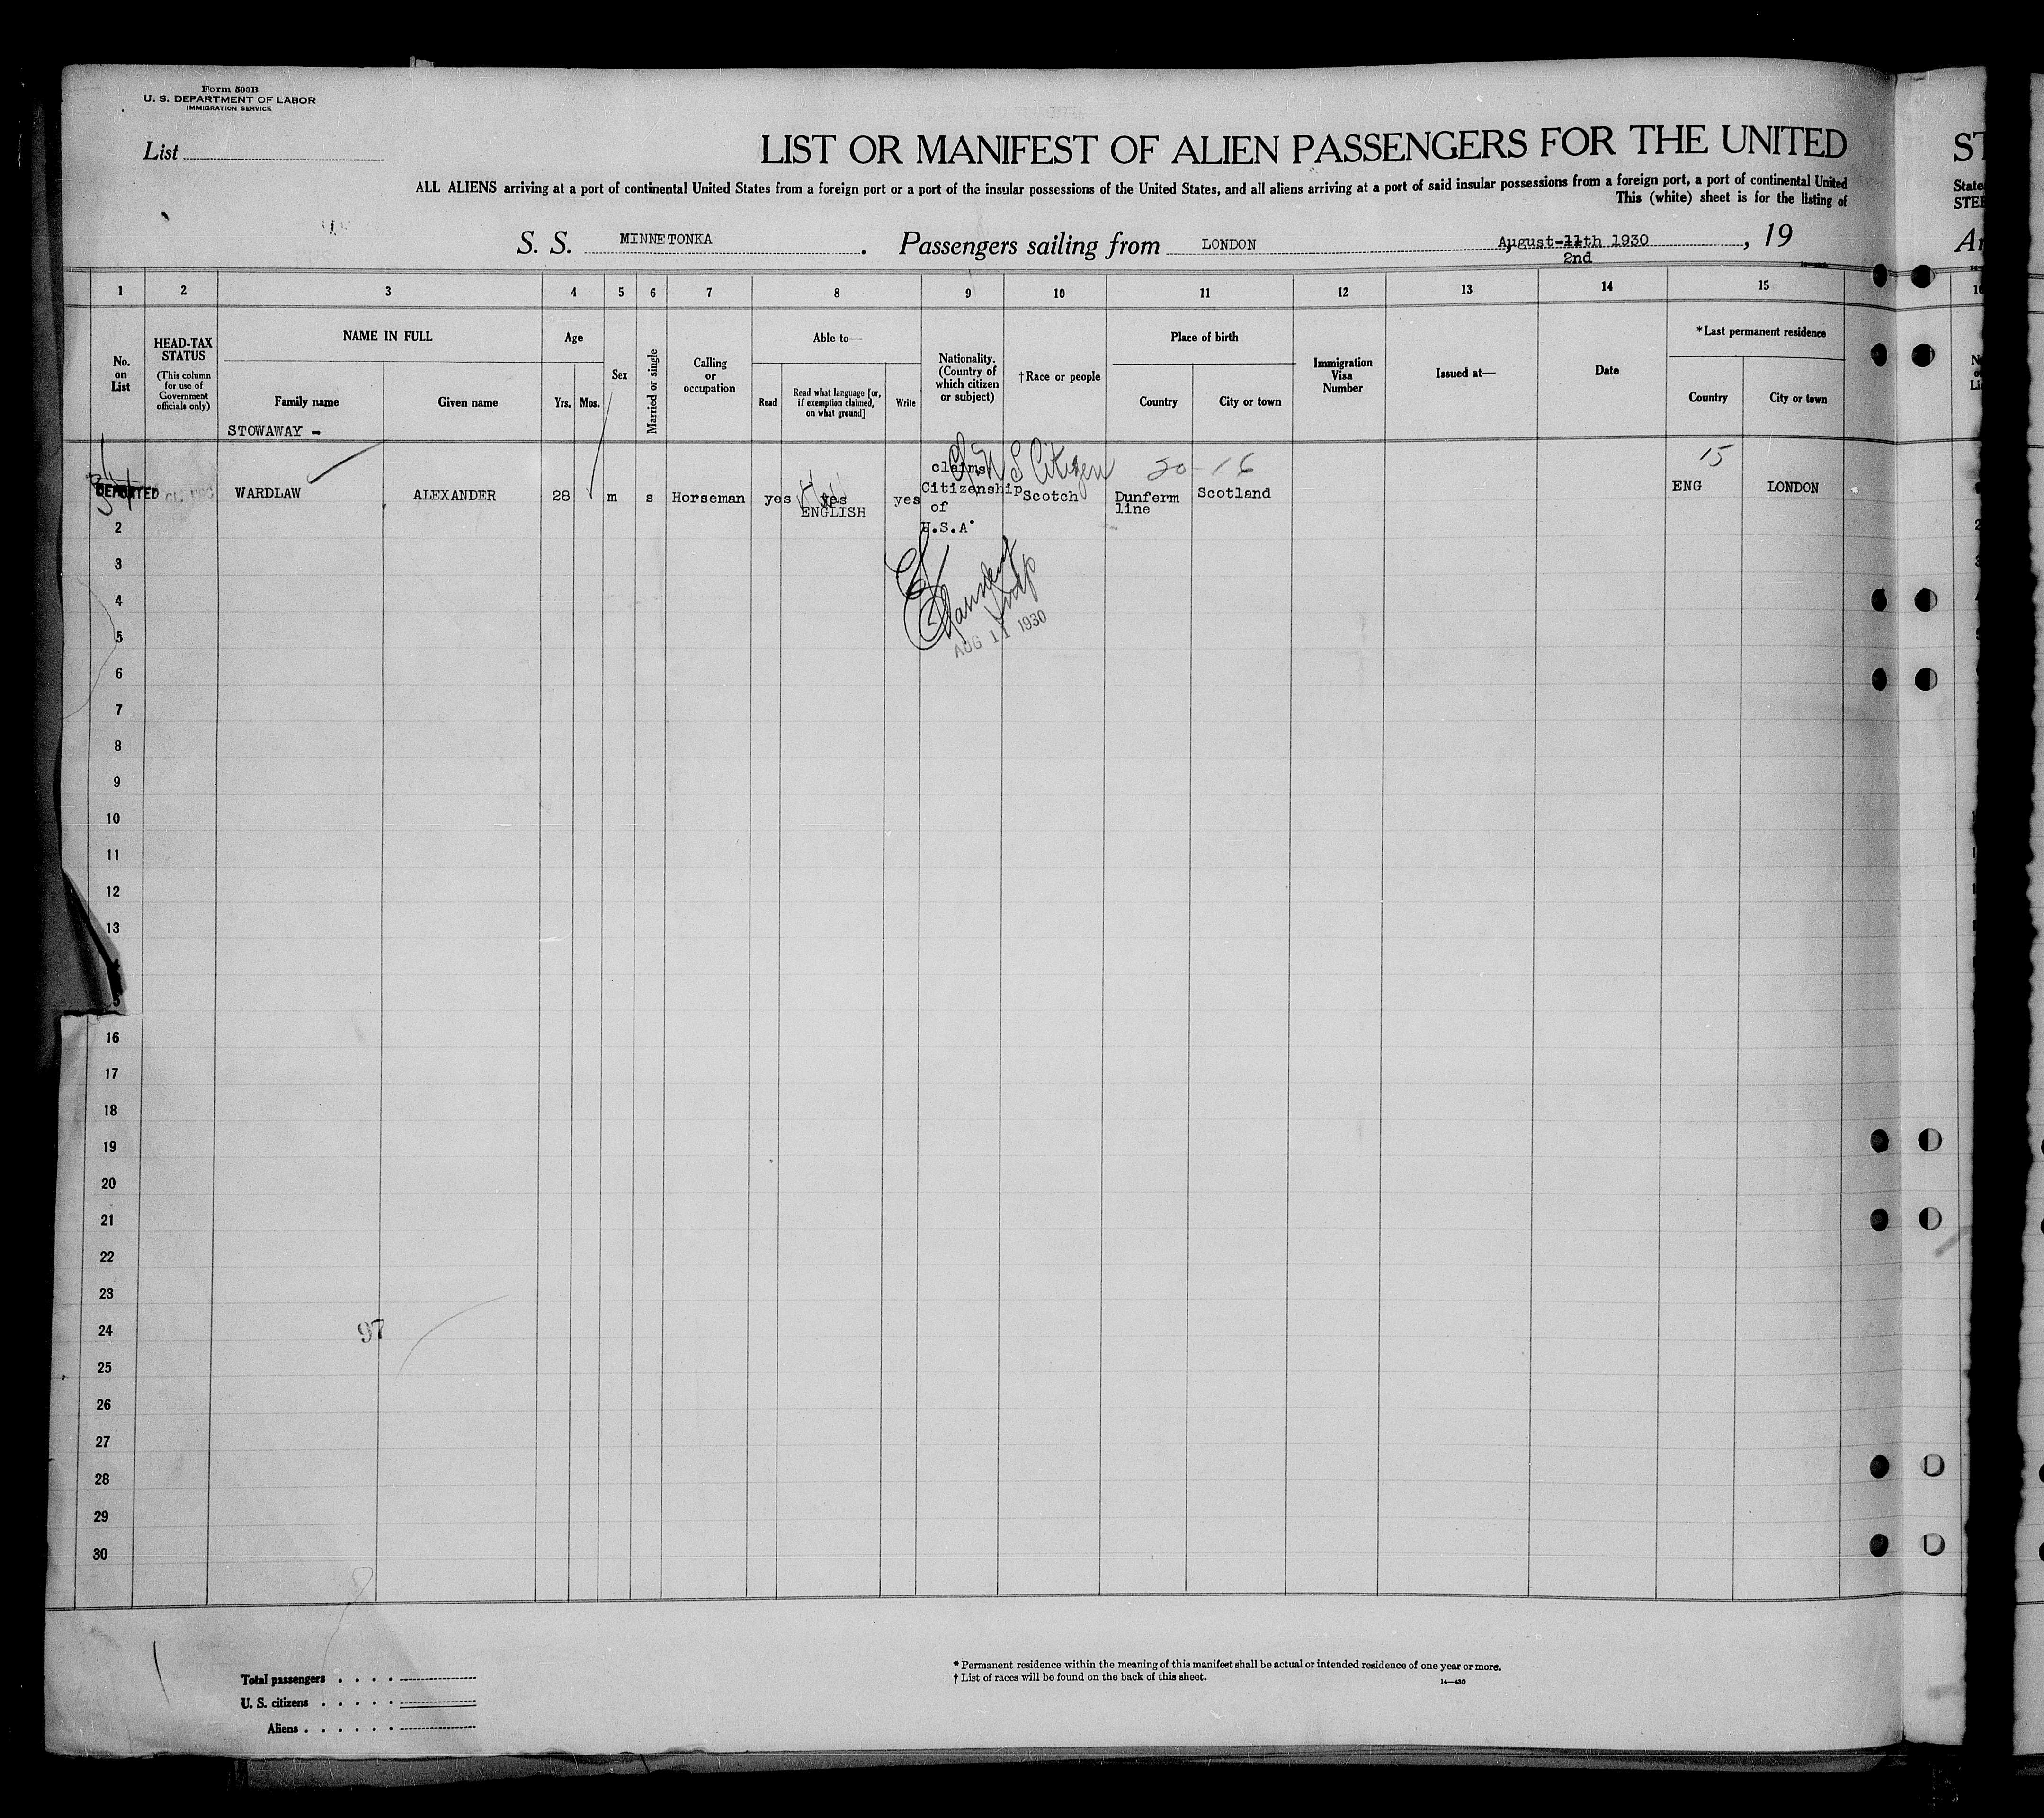 Form 500B
U. S. DEPARTMENT OF LABOR
IMMIGRATION SERVICE
List
LIST OR MANIFEST OF ALIEN PASSENGERS FOR THE UNITED
ALL ALIENS arriving at a port of continental United States from a foreign port or a port of the insular possessions of the United States, and all aliens arriving at a port of said insular possessions from a foreign port, a port of continental United
This (white) sheet is for the listing of
S. S. MINNETONKA . Passengers sailing from LONDON August 11th 1930 , 19
2nd
1 2 3 4 5 6 7 8 9 10 11 12 13 14 15
No. on List
HEAD-TAX STATUS
(This column for use of Government officials only)
NAME IN FULL
Family name
Given name
Age
Yrs. Mos.
Sex
Married or single
Calling or occupation
Able to—
Read
Read what language [or, if exemption claimed, on what ground]
Write
Nationality. (Country of which citizen or subject)
†Race or people
Place of birth
Country
City or town
Immigration Visa Number
Issued at—
Date
*Last permanent residence
Country
City or town
STOWAWAY -
DEPORTED WARDLAW ALEXANDER 28 m s Horseman yes yes ENGLISH yes claims Citizenship of U.S.A. Scotch Dunferm line Scotland ENG LONDON
S Citizen
20-16
15
2
3
4
5
AUG 11 1930
6
7
8
9
10
11
12
13
16
17
18
19
20
21
22
23
24
97
25
26
27
28
29
30
Total passengers
U. S. citizens
Aliens
* Permanent residence within the meaning of this manifest shall be actual or intended residence of one year or more.
† List of races will be found on the back of this sheet.
14—430
ST
State
STEE